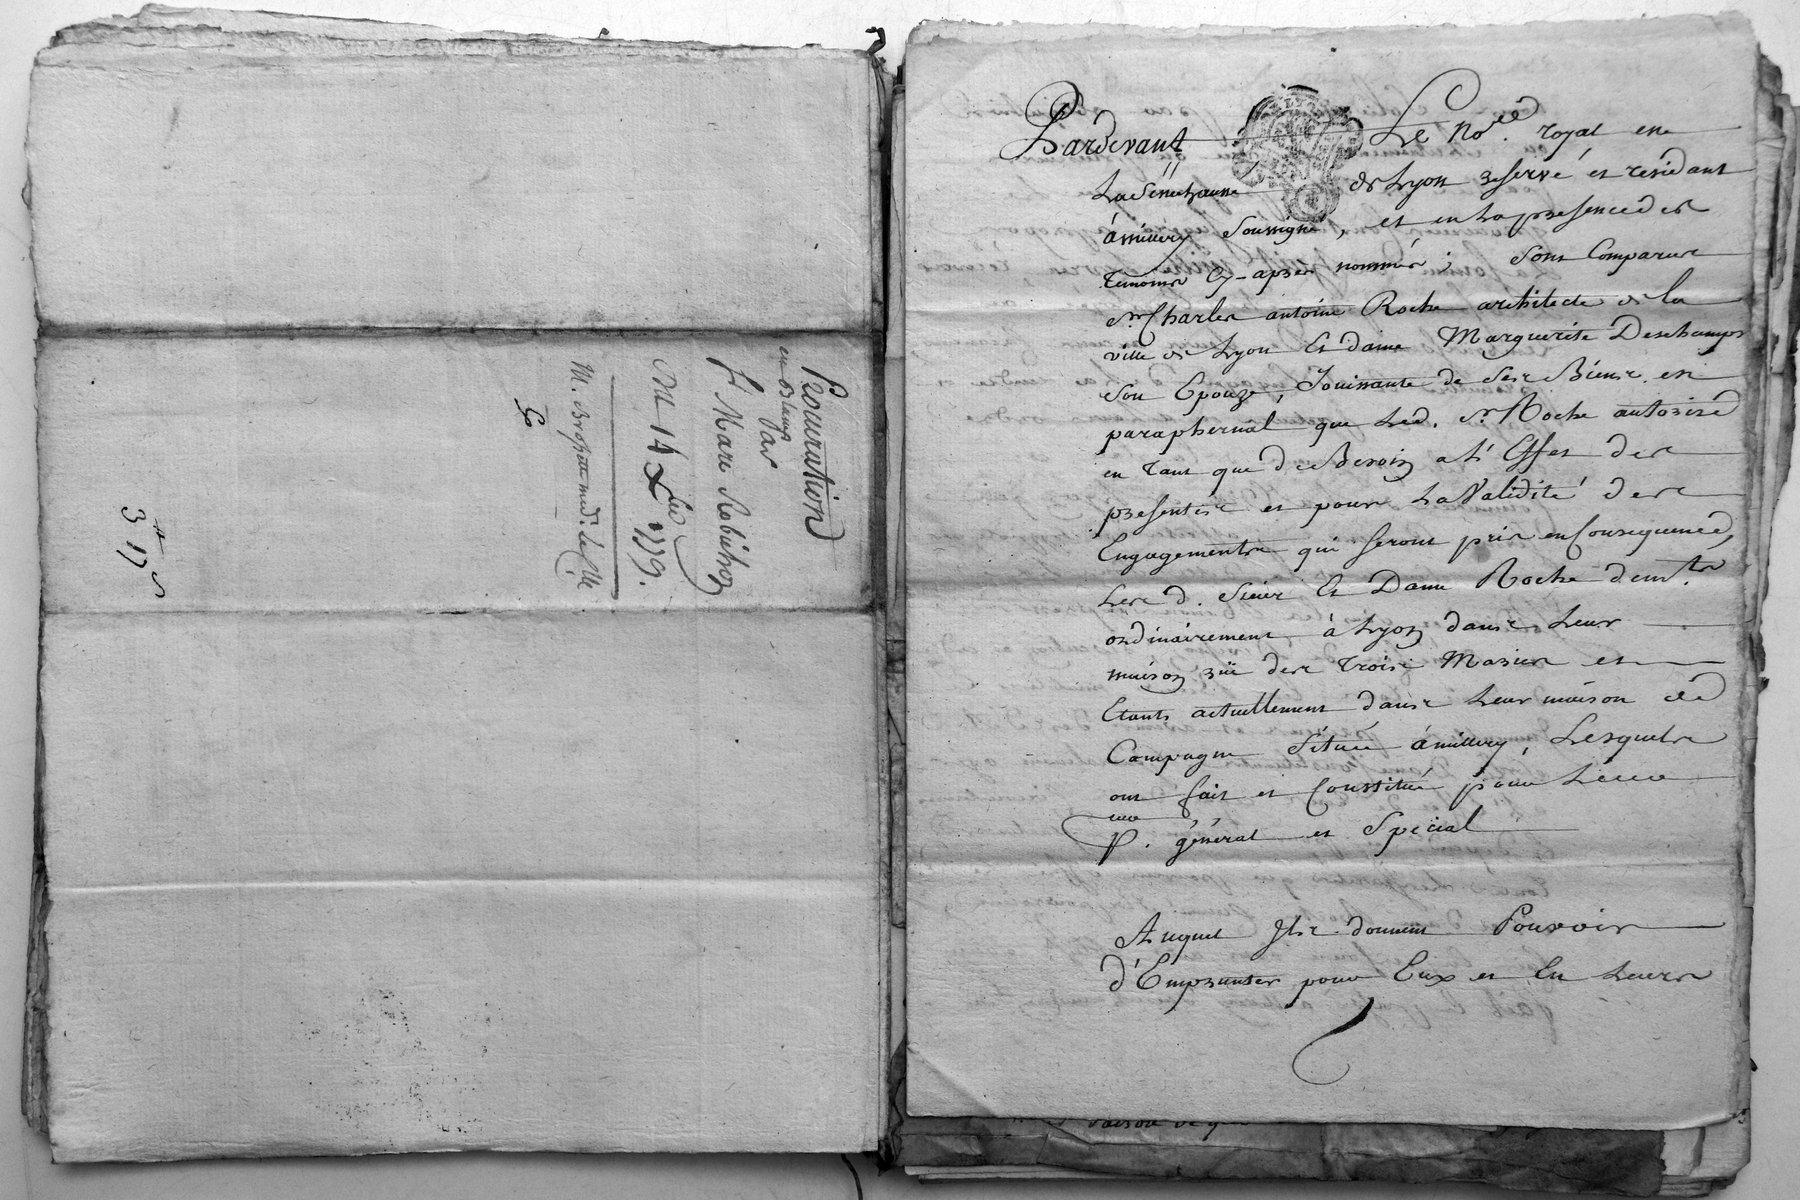 Procuration
en Blanc
Par
Sr Marc Robichon
Du 14 Xbre 1779.
M. Brossette
3tt 17s
Pardevant Le Nore. royal en
La Sénéchaussée de Lyon réservé et résidant
à millery soussigné, et en La présence des
témoins Cy-après nommés; sont Comparus
Sr. Charles antoine Roche architecte de la
ville de Lyon Et dame Marguerite Deschamps
son Epouze, Jouissante de ses Biens en
paraphernal que Led. Sr. Roche autorise
en tant que de Besoin a L'Effet des
présentes et pour La Validité des
Engagements qui seront pris en Conséquence,
Les d. Sieur Et Dame Roche demts.
ordinairement à Lyon dans Leur
maison rüe des trois Maries et
Etants actuellement dans Leur maison de
Campagne située à millery, Lesquels
ont fait et Constitué pour Leur
Pr. général et Spécial
Auquel Ils donnent Pouvoir
d'Emprunter pour Eux et En Leurs